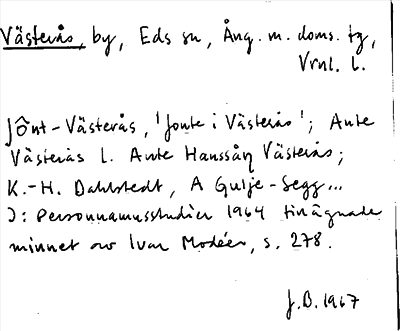 Västerås, by, Eds sn, Ång. m. doms. tg,
Vrnl. l.
Jônt-Västerås, 'Jonte i Västerås'; Ante
Västerås l. Ante Hanssån Västerås;
K.-H. Dahlstedt, A Gulje-Segg...
I: Personnamnsstudier 1964 tillägnade
minnet av Ivar Modéer, s. 278.
J.B. 1967